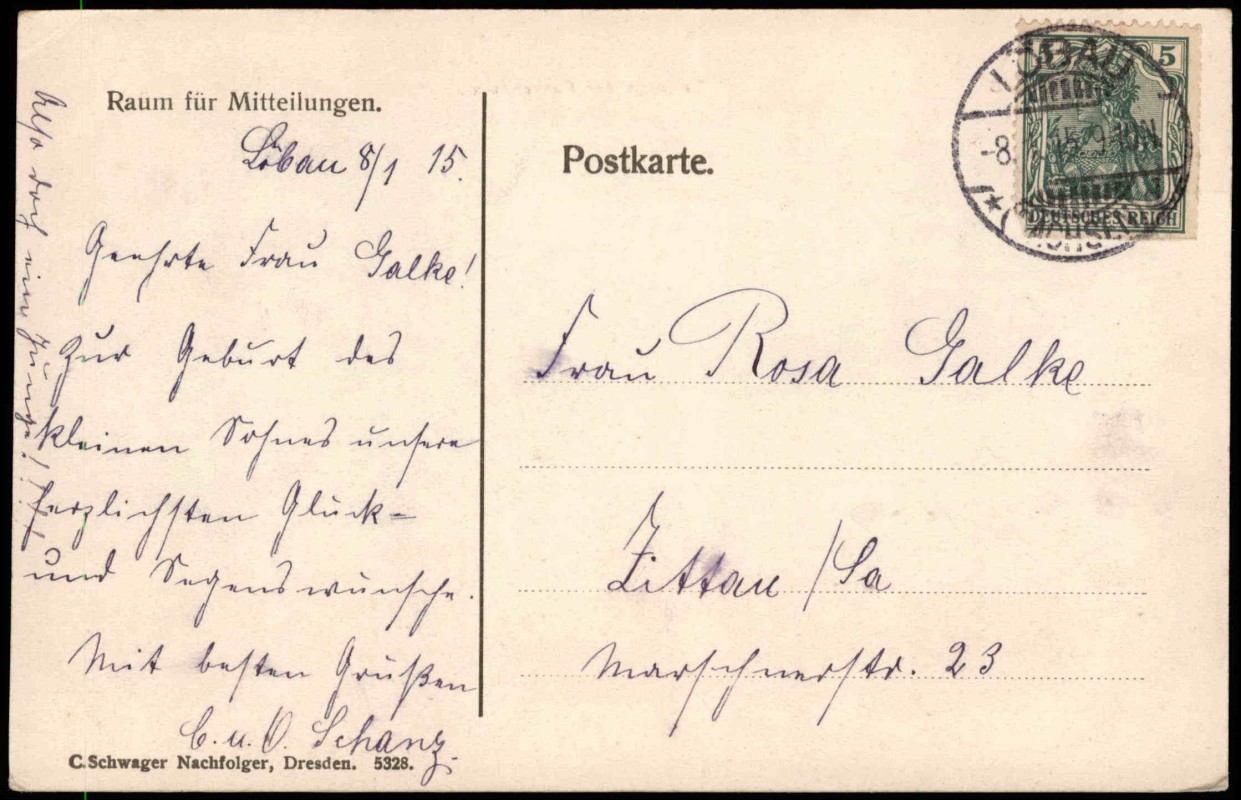 Raum für Mitteilungen.
Löbau 8/1 15.
Geehrte Frau Galke!
Zur Geburt des
kleinen Sohnes unsere
herzlichsten Glück-
und Segenswünsche.
Mit besten Grüßen
C. u. O. Schanz.
Also doch ein Junge!!!
C. Schwager Nachfolger, Dresden. 5328.
Postkarte.
5 5
LÖBAU
-8. 1. 15. 9-10N
* (SACHSEN)
DEUTSCHES REICH
Frau Rosa Galke
Zittau /Sa
Marschnerstr. 23